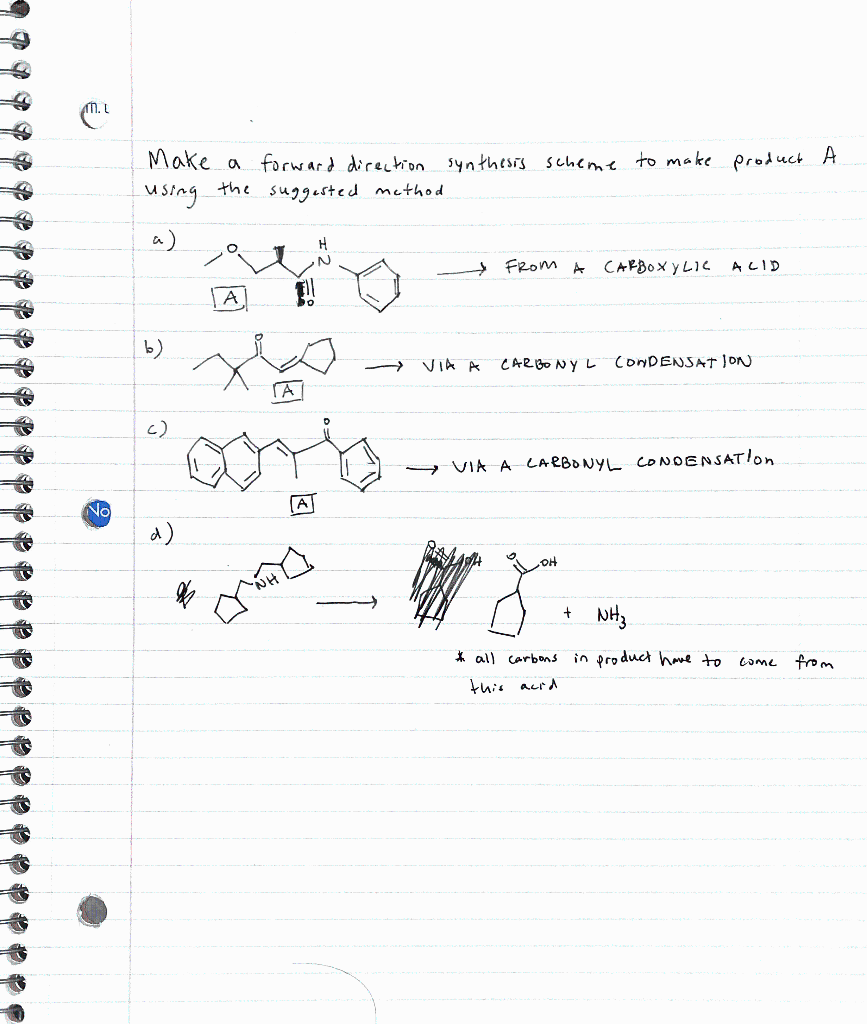 m.L
Make a forward direction synthesis scheme to make product A
using the suggested method
a)
O
H
N
O
A
→ FROM A CARBOXYLIC ACID
b)
O
A
→ VIA A CARBONYL CONDENSATION
c)
O
A
→ VIA A CARBONYL CONDENSATION
NO
d)
NH
→
O
OH
+ NH3
* all carbons in product have to come from
this acid